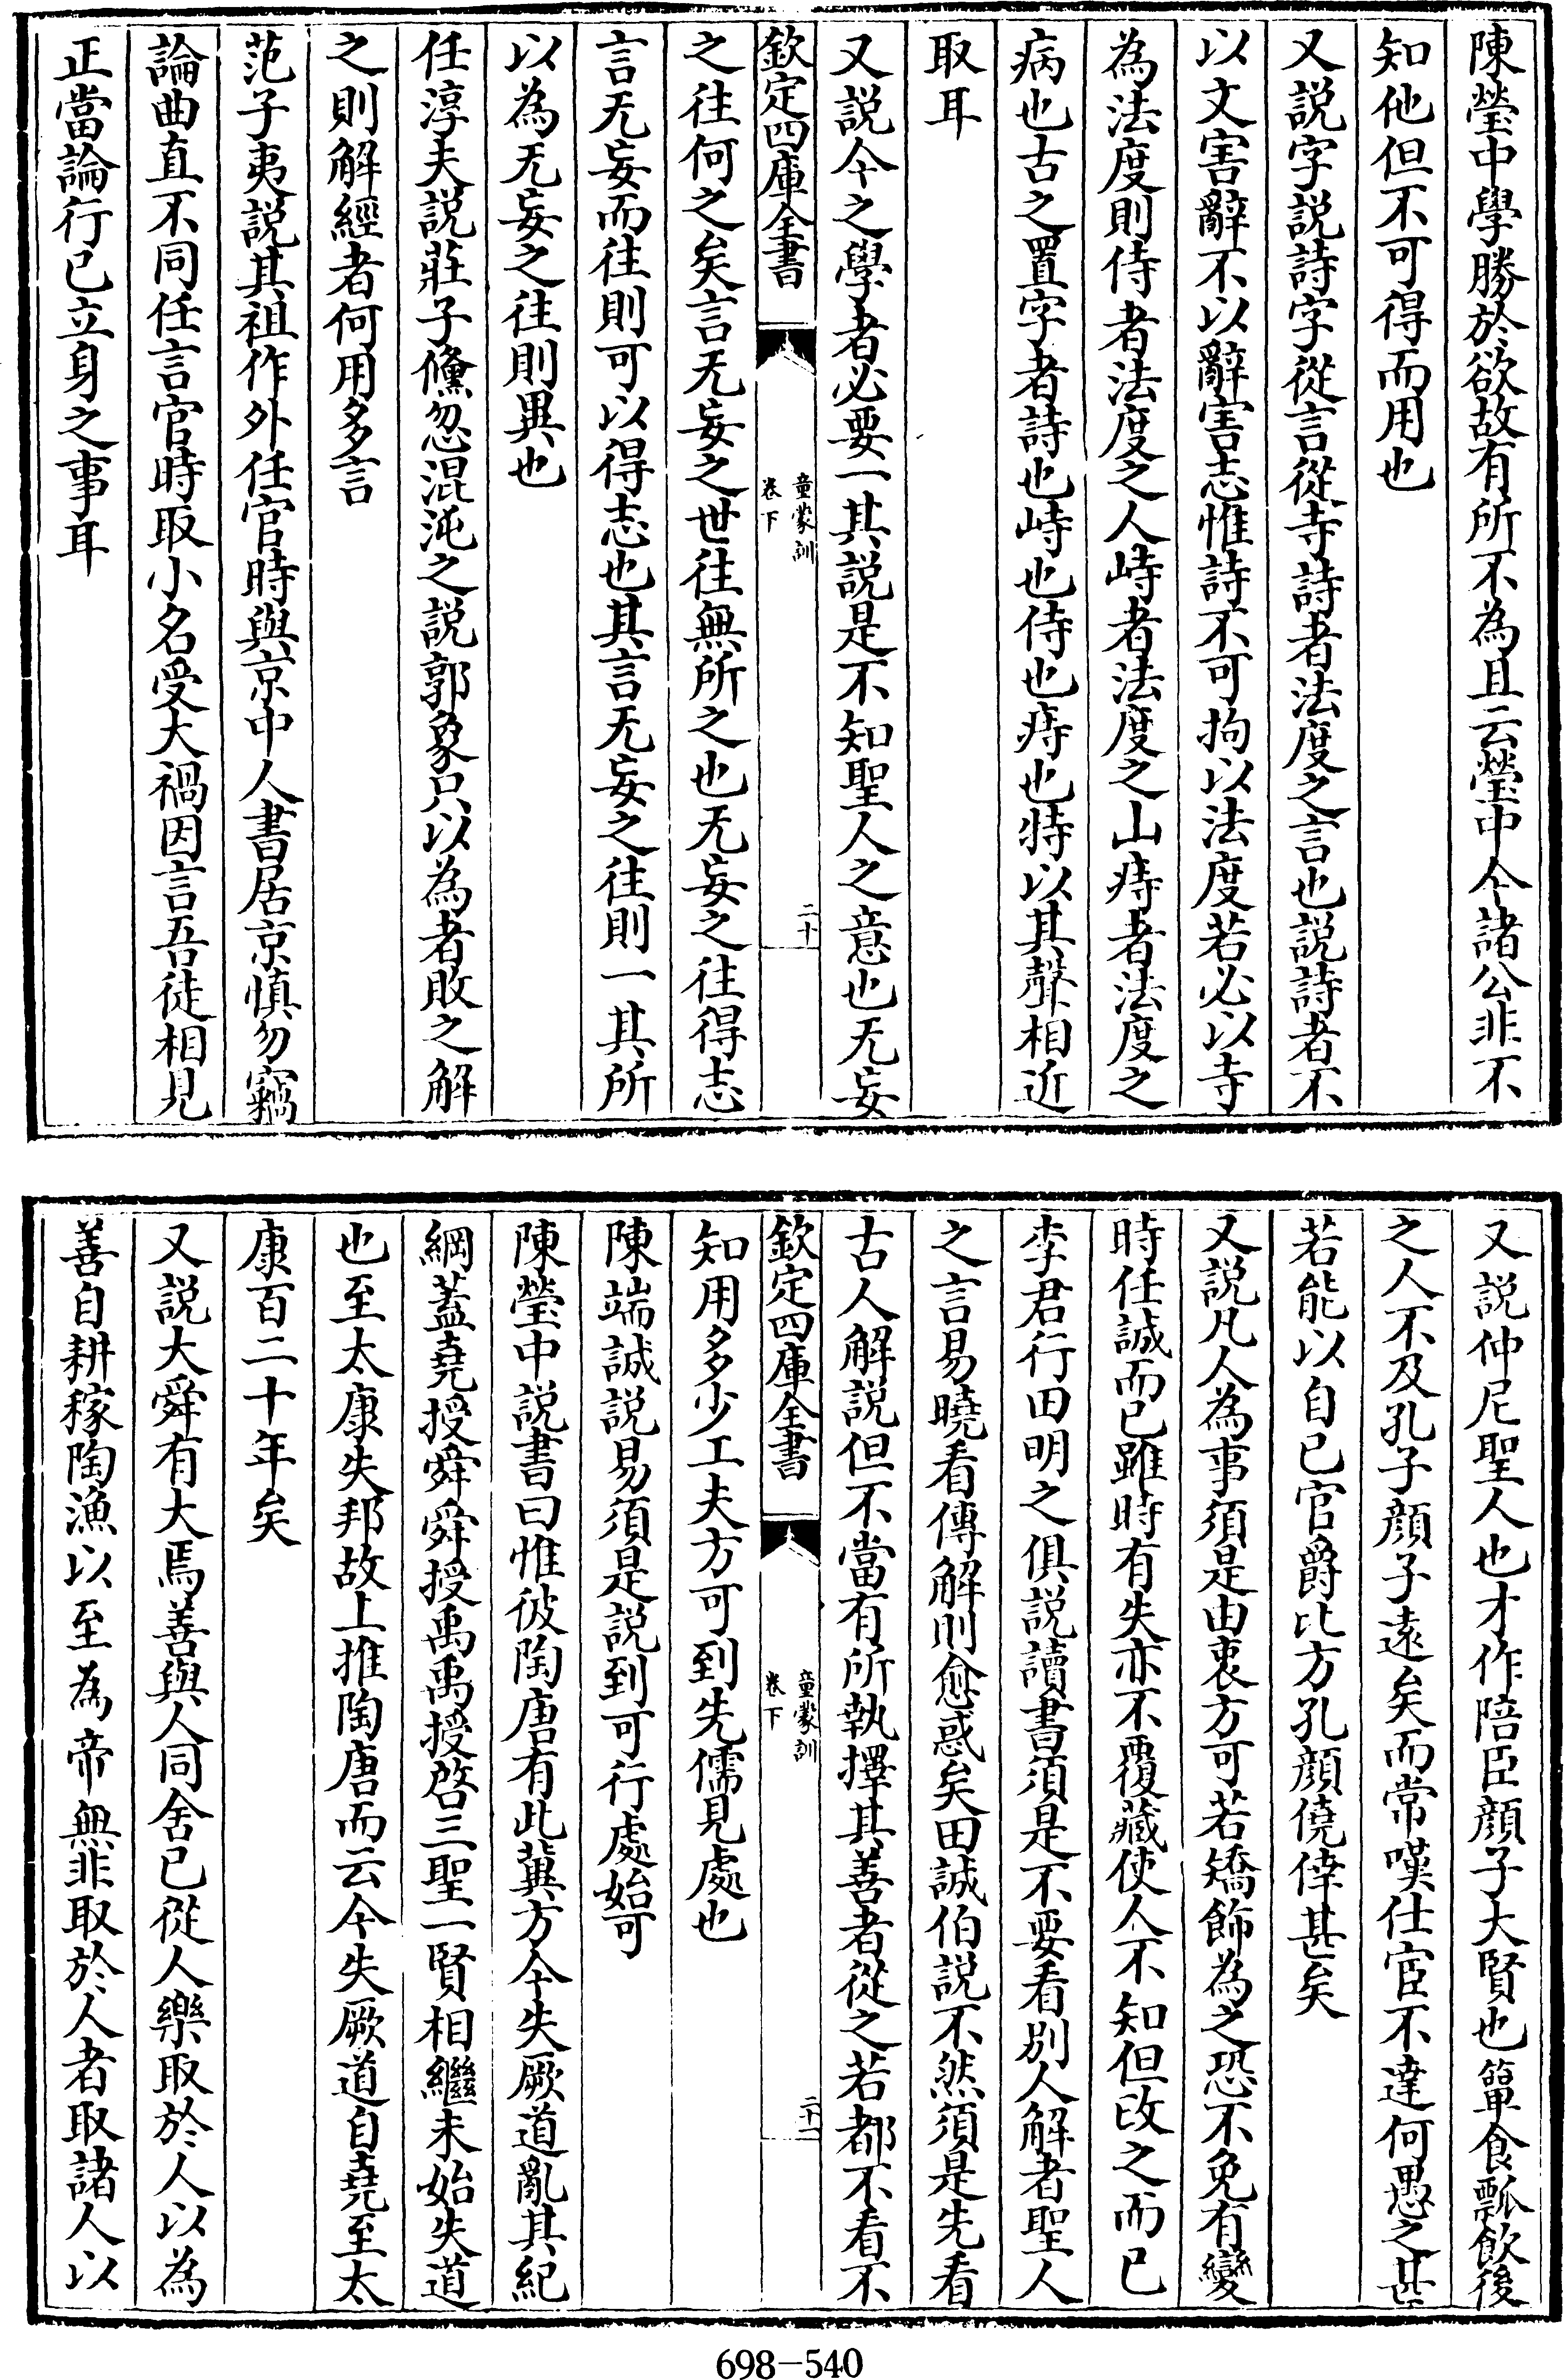 陳瑩中學勝於欲故有所不為且云瑩中今諸公非不
知他但不可得而用也
又説字説詩字從言從寺詩者法度之言也説詩者不
以文害辭不以辭害志惟詩不可拘以法度若必以寺
為法度則侍者法度之人峙者法度之山痔者法度之
病也古之置字者詩也峙也侍也痔也特以其聲相近
取耳
又説今之學者必要一其説是不知聖人之意也无妄
欽定四庫全書
童蒙訓
卷下
二十
之往何之矣言无妄之世往無所之也无妄之往得志
言无妄而往則可以得志也其言无妄之往則一其所
以為无妄之往則異也
任淳夫説莊子儵忽混沌之説郭象只以為者敗之解
之則解經者何用多言
范子夷説其祖作外任官時與京中人書居京慎勿竊
論曲直不同任言官時取小名受大禍因言吾徒相見
正當論行己立身之事耳
又説仲尼聖人也才作陪臣顔子大賢也簞食瓢飲後
之人不及孔子顔子遠矣而常嘆仕宦不達何愚之甚
若能以自己官爵比方孔顔僥倖甚矣
又説凡人為事須是由衷方可若矯飾為之恐不免有變
時任誠而已雖時有失亦不覆藏使人不知但改之而已
李君行田明之俱説讀書須是不要看別人解者聖人
之言易曉看傳解則愈惑矣田誠伯説不然須是先看
古人解説但不當有所執擇其善者從之若都不看不
欽定四庫全書
童蒙訓
卷下
二十一
知用多少工夫方可到先儒見處也
陳端誠説易須是説到可行處始可
陳瑩中説書曰惟彼陶唐有此冀方今失厥道亂其紀
綱蓋堯授舜舜授禹禹授啓三聖一賢相繼未始失道
也至太康失邦故上推陶唐而云今失厥道自堯至太
康百二十年矣
又説大舜有大焉善與人同舍己從人樂取於人以為
善自耕稼陶漁以至為帝無非取於人者取諸人以
698-540